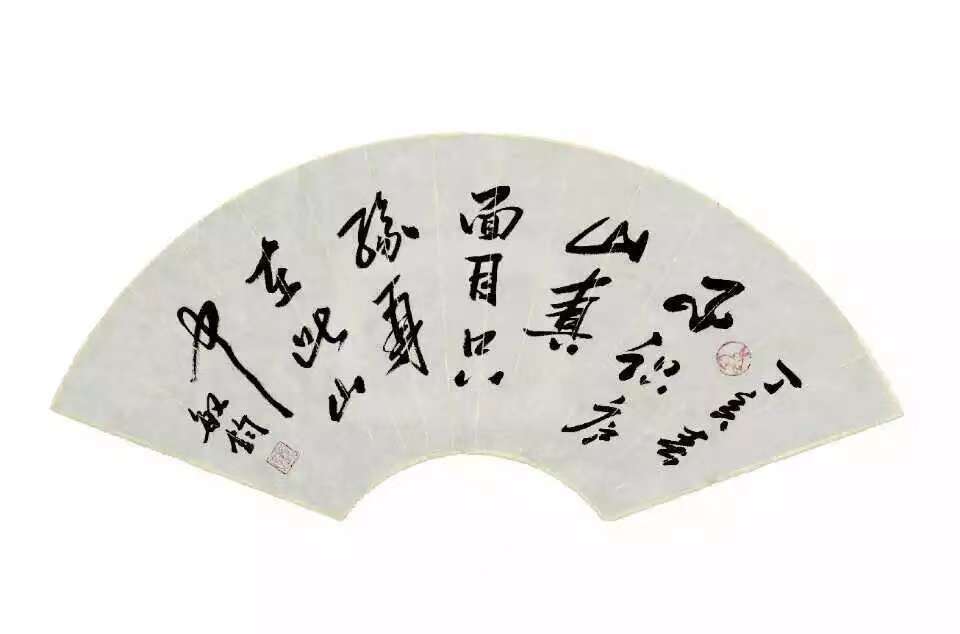 不识庐
山真
面目只
缘身
在此山
中